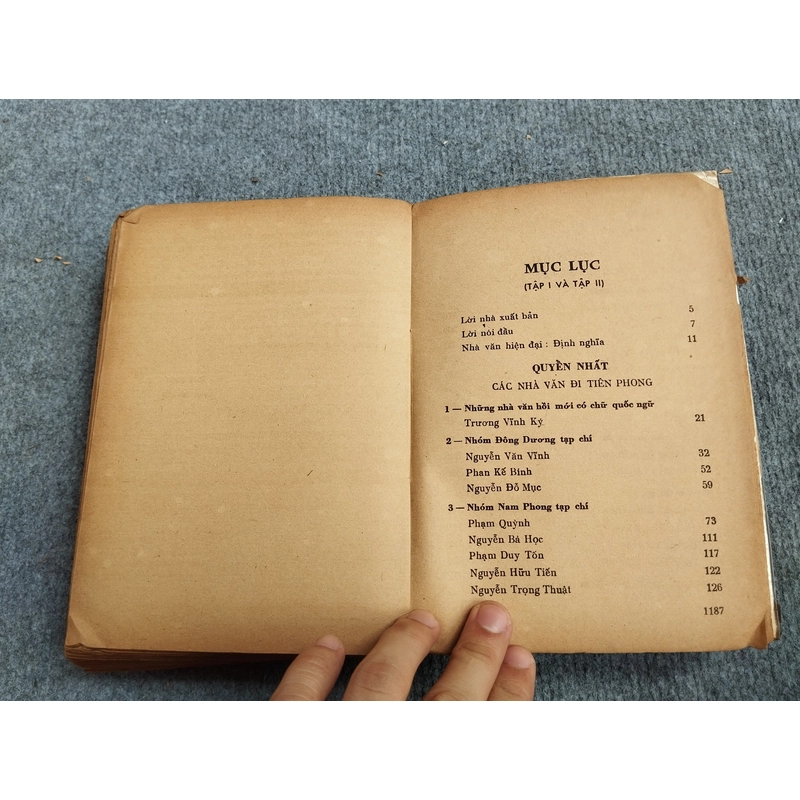 MỤC LỤC
(TẬP I VÀ TẬP II)
Lời nhà xuất bản 5
Lời nói đầu 7
Nhà văn hiện đại : Định nghĩa 11
QUYỂN NHẤT
CÁC NHÀ VĂN ĐI TIÊN PHONG
1 — Những nhà văn hồi mới có chữ quốc ngữ
Trương Vĩnh Ký 21
2 — Nhóm Đông Dương tạp chí
Nguyễn Văn Vĩnh 32
Phan Kế Bính 52
Nguyễn Đỗ Mục 59
3 — Nhóm Nam Phong tạp chí
Phạm Quỳnh 73
Nguyễn Bá Học 111
Phạm Duy Tốn 117
Nguyễn Hữu Tiến 122
Nguyễn Trọng Thuật 126
1187